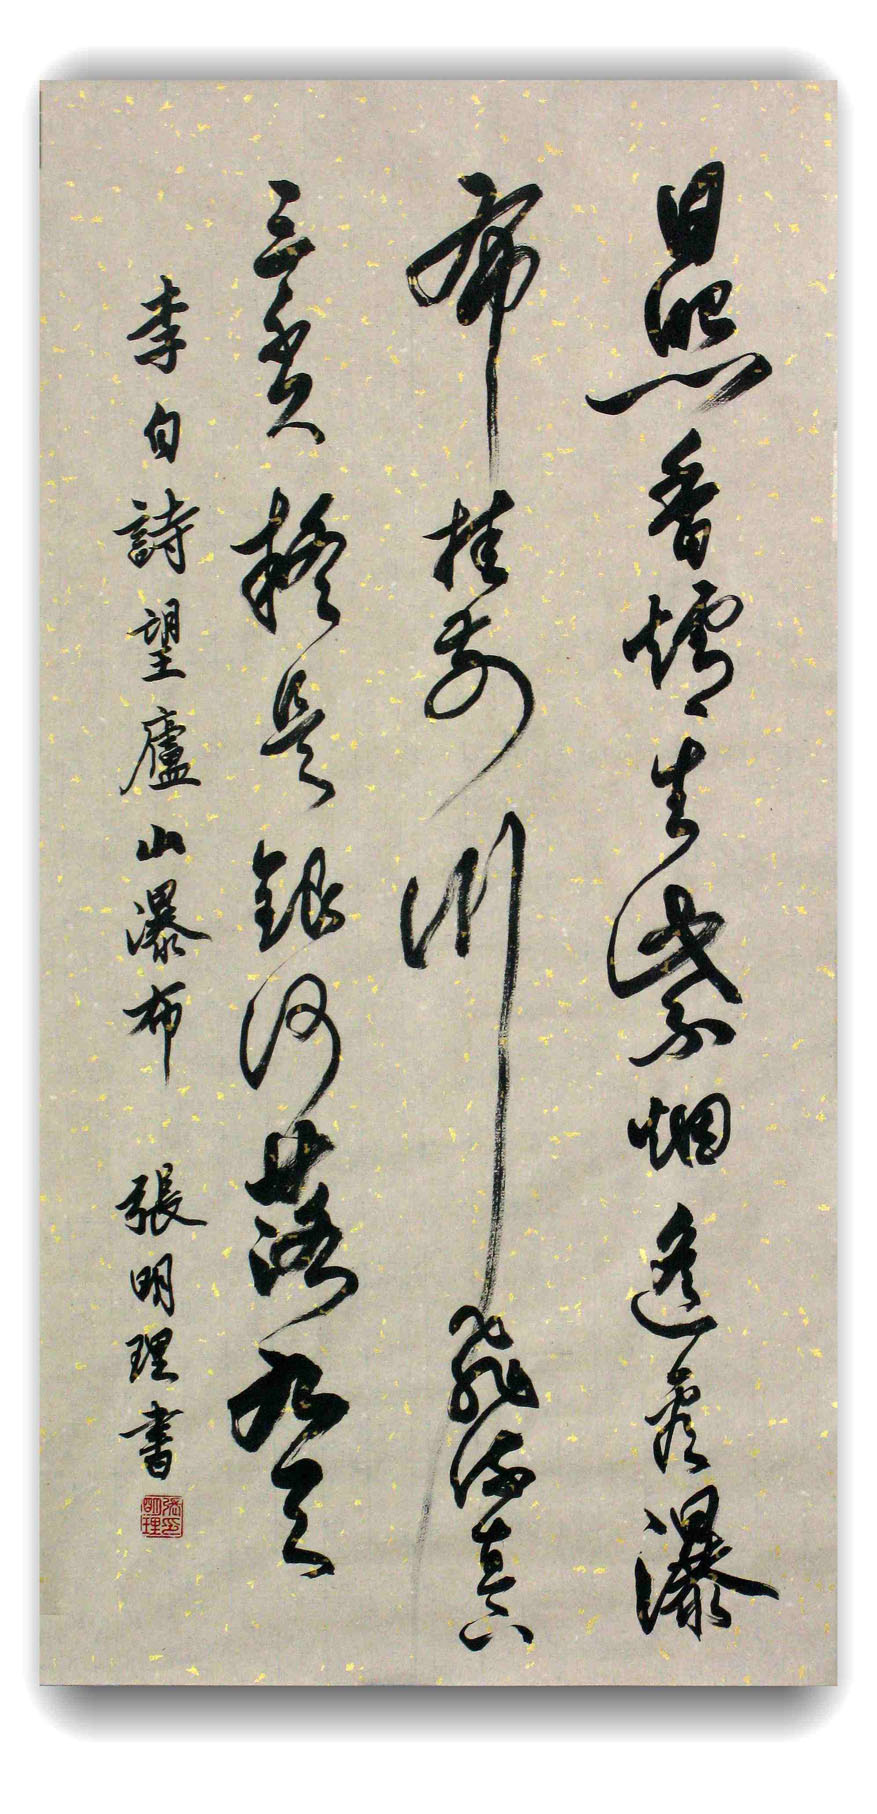 日照香爐生紫烟遙看瀑
布挂前川飛流直下
三千尺疑是銀河落九天
李白詩望廬山瀑布 張明理書
張印明理